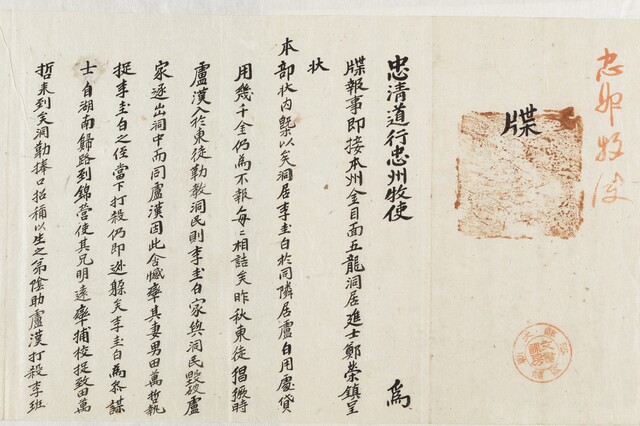 忠州牧使
牒
忠清道行忠州牧使 為
牒報事即接本州金目面五龍洞居進士鄭榮鎮呈
狀
本部狀內槩以矣洞居李圭白於同隣居盧白用處貸
用幾千金仍為不報每〻相詰矣昨秋東徒猖獗時
盧漢入於東徒勒教洞民則李圭白家與洞民毀破盧
家逐出洞中而同盧漢因此含憾率其妻男田萬哲執
捉李圭白之侄當下打殺仍即逃躱矣李圭白為參謀
士自湖南歸路到錦營使其兄明遠率捕校捉致田萬
哲來到矣洞勒捧口招稱以生之弟陰助盧漢打殺李班